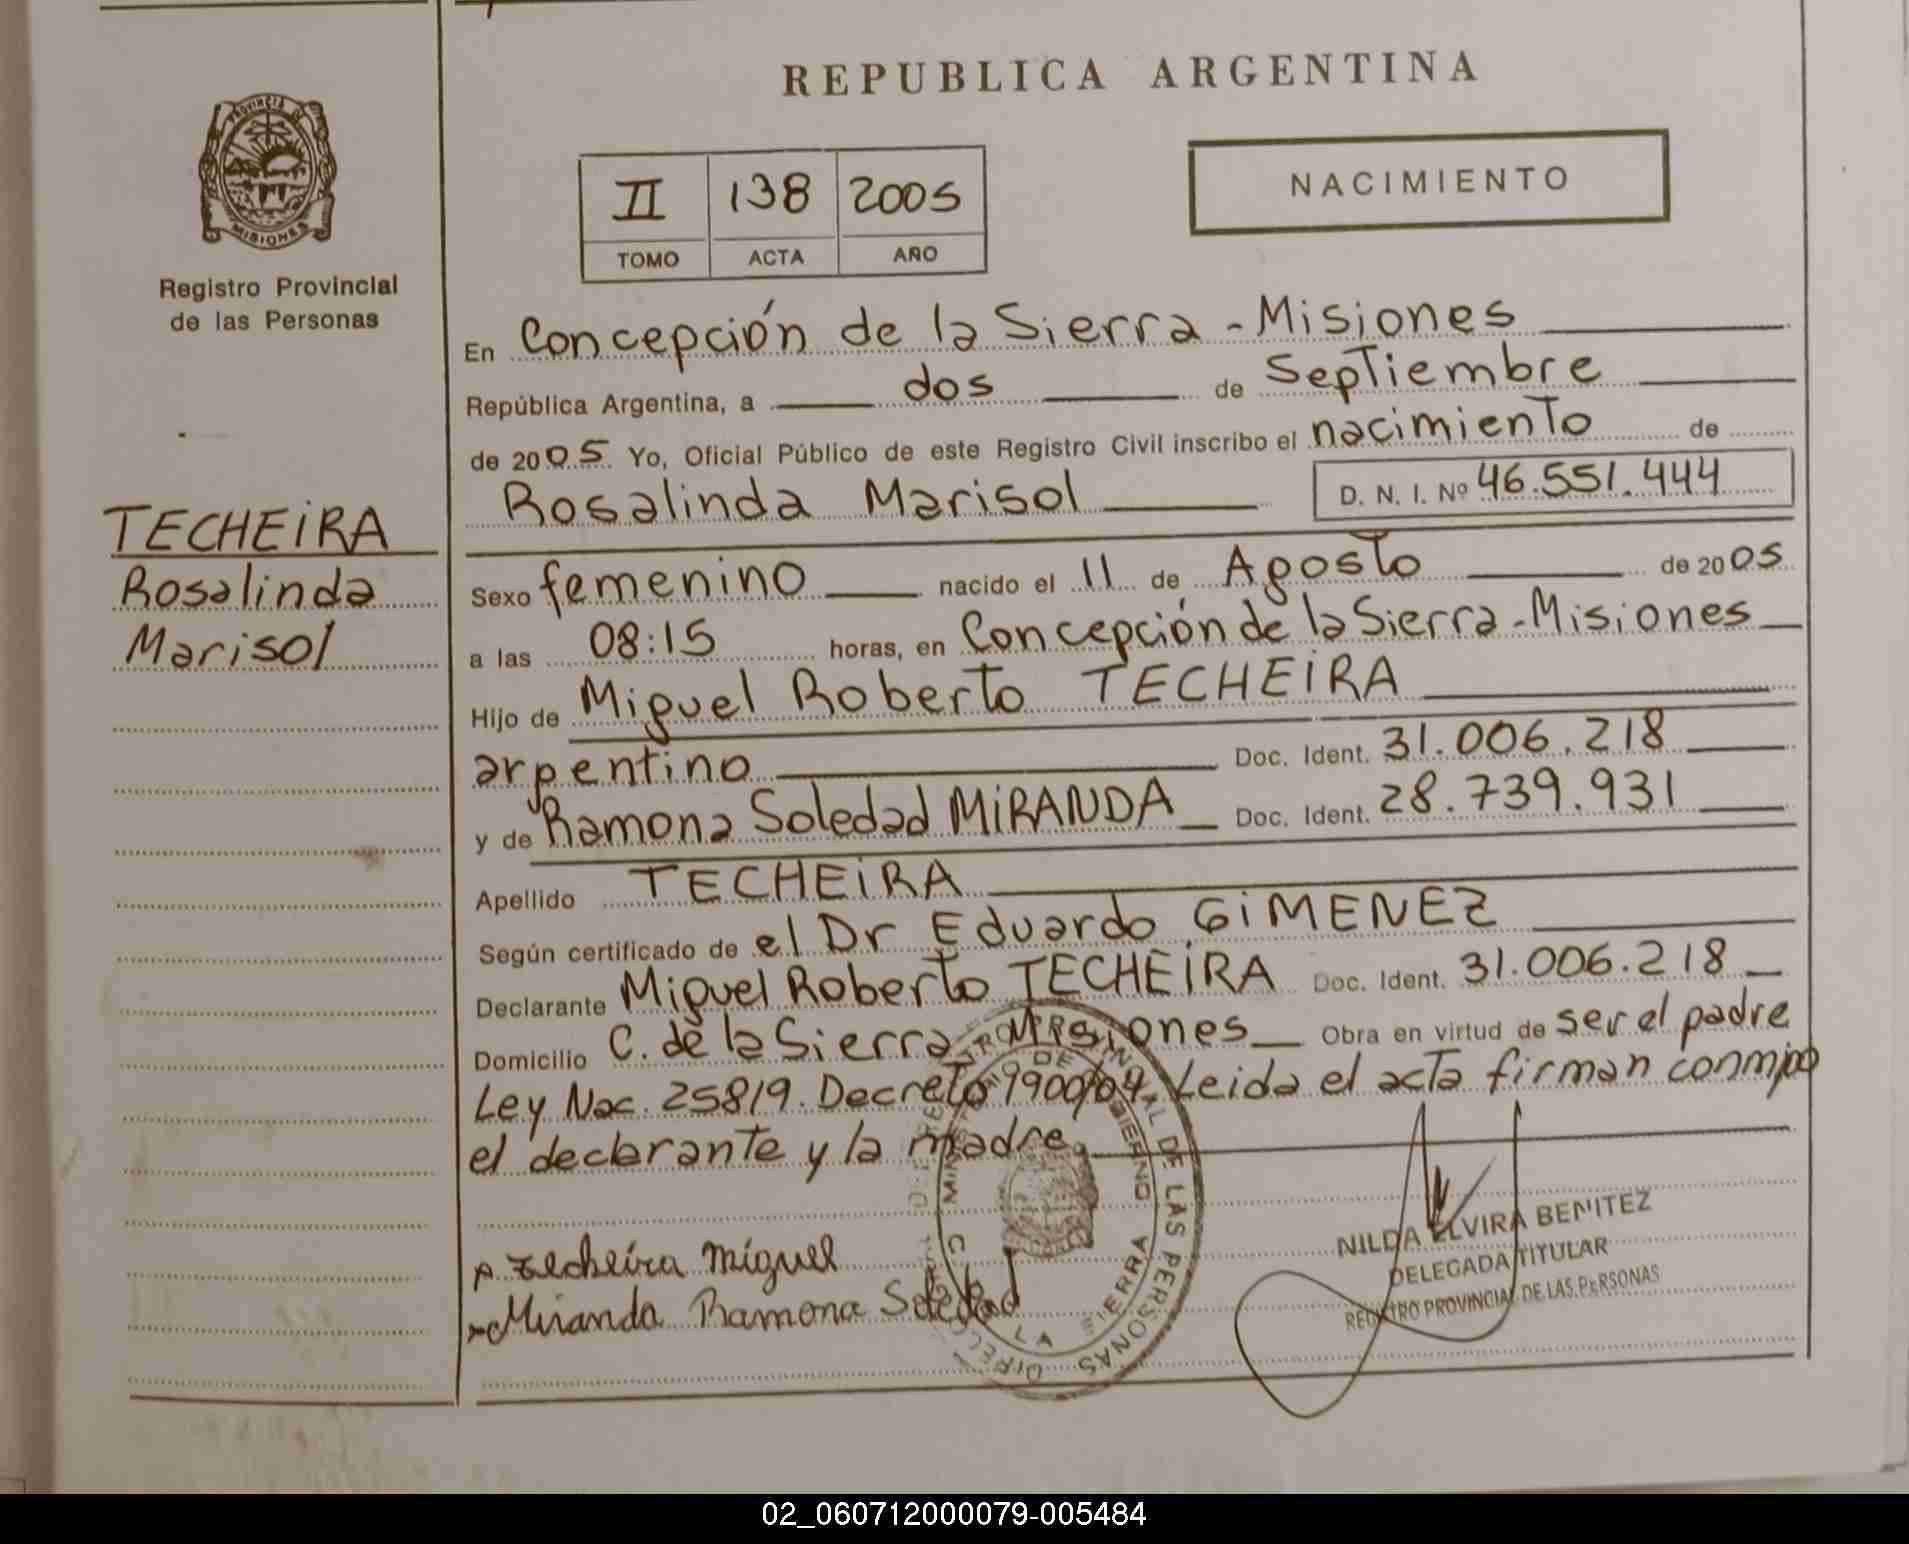 REPUBLICA ARGENTINA
PROVINCIA DE
MISIONES
Registro Provincial
de las Personas
II 138 2005
TOMO ACTA AÑO
NACIMIENTO
TECHEiRA
Rosalinda
Marisol
En Concepción de la Sierra - Misiones
República Argentina, a dos de Septiembre
de 2005 Yo, Oficial Público de este Registro Civil inscribo el nacimiento de
Rosalinda Marisol D. N. I. Nº 46.551.444
Sexo femenino nacido el 11 de Agosto de 2005
a las 08:15 horas, en Concepción de la Sierra - Misiones
Hijo de Miguel Roberto TECHEiRA
argentino Doc. Ident. 31.006.218
y de Ramona Soledad MiRANDA Doc. Ident. 28.739.931
Apellido TECHEiRA
Según certificado de el Dr Eduardo GiMENEZ
Declarante Miguel Roberto TECHEiRA Doc. Ident. 31.006.218
Domicilio C. de la Sierra Misiones Obra en virtud de ser el padre
Ley Nac. 25819. Decreto 1900/04. Leida el acta firman conmigo
el declarante y la madre.
Techeira Miguel
Miranda Ramona Soledad
DE LAS PERSONAS
LA SIERRA
NILDA ELVIRA BENITEZ
DELEGADA TITULAR
REGISTRO PROVINCIAL DE LAS PERSONAS
02_060712000079-005484